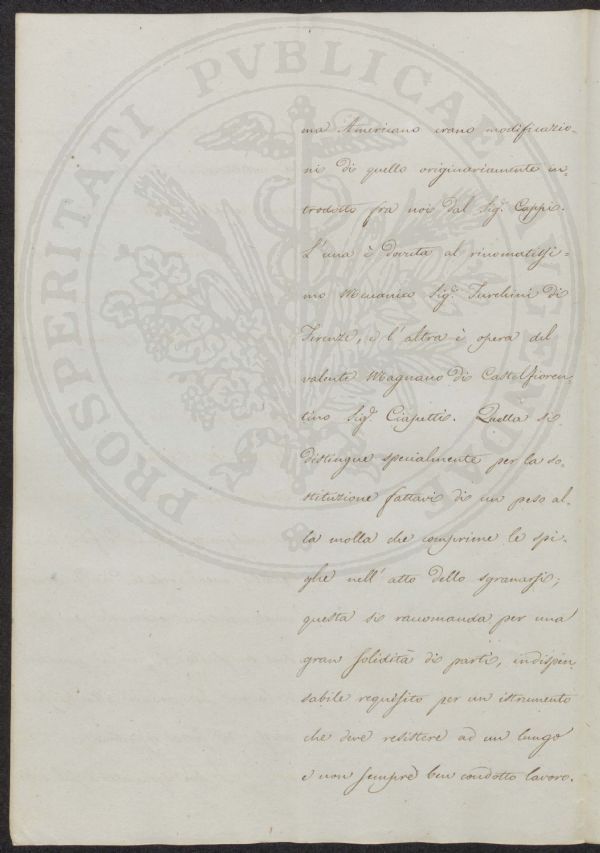 PROSPERITATI PVBLICAE AVGENDAE
ma Americano erano modificazio-
ni di quello originariamente in-
trodotto fra noi dal Sig. Cappi.
L'una è dovuta al rinomatissi-
mo Mecanico Sig. Turchini di
Firenze, e l'altra è opera del
valente Magnano di Castelfioren-
tino Sig. Ciapetti. Quella si
distingue specialmente per la so-
stituzione fattavi di un peso al-
la molla che comprime le spi-
ghe nell'atto dello sgranarsi;
questa si raccomanda per una
gran solidità di parti, indispen-
sabile requisito per un istrumento
che deve resistere ad un lungo
e non sempre ben condotto lavoro.